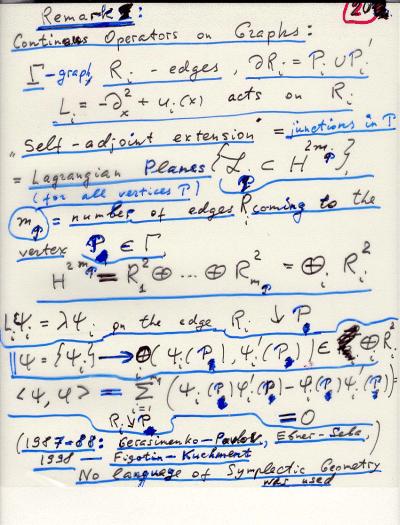 Remark 1:
Continous Operators on Graphs:
Γ-graph, R_i - edges, ∂R_i = P_i ∪ P_i'
L_i = -∂_x^2 + u_i(x) acts on R_i
"Self-adjoint extension" = junctions in P
= Lagrangian Planes {L_P ⊂ H_P^{2m_P}},
(for all vertices P)
m_P = number of edges R_i coming to the
vertex P ∈ Γ
H^{2m_P} = R_1^2 ⊕ ... ⊕ R_{m_P}^2 = ⊕_i R_i^2
L_iΨ_i = λΨ_i on the edge R_i ↓ P
Ψ = {Ψ_i} → ⊕(Ψ_i(P), Ψ_i'(P)) ∈ ⊕ R_i^2
<Ψ, φ> = Σ_{i=1} (Ψ_i(P)φ_i'(P) - φ_i(P)Ψ_i'(P)) =
R_i ↓ P = 0
(1987-88: Gerasinenko-Pavlov, Exner-Seba,)
1998 — Figotin-Kuchment
No language of Symplectic Geometry
was used